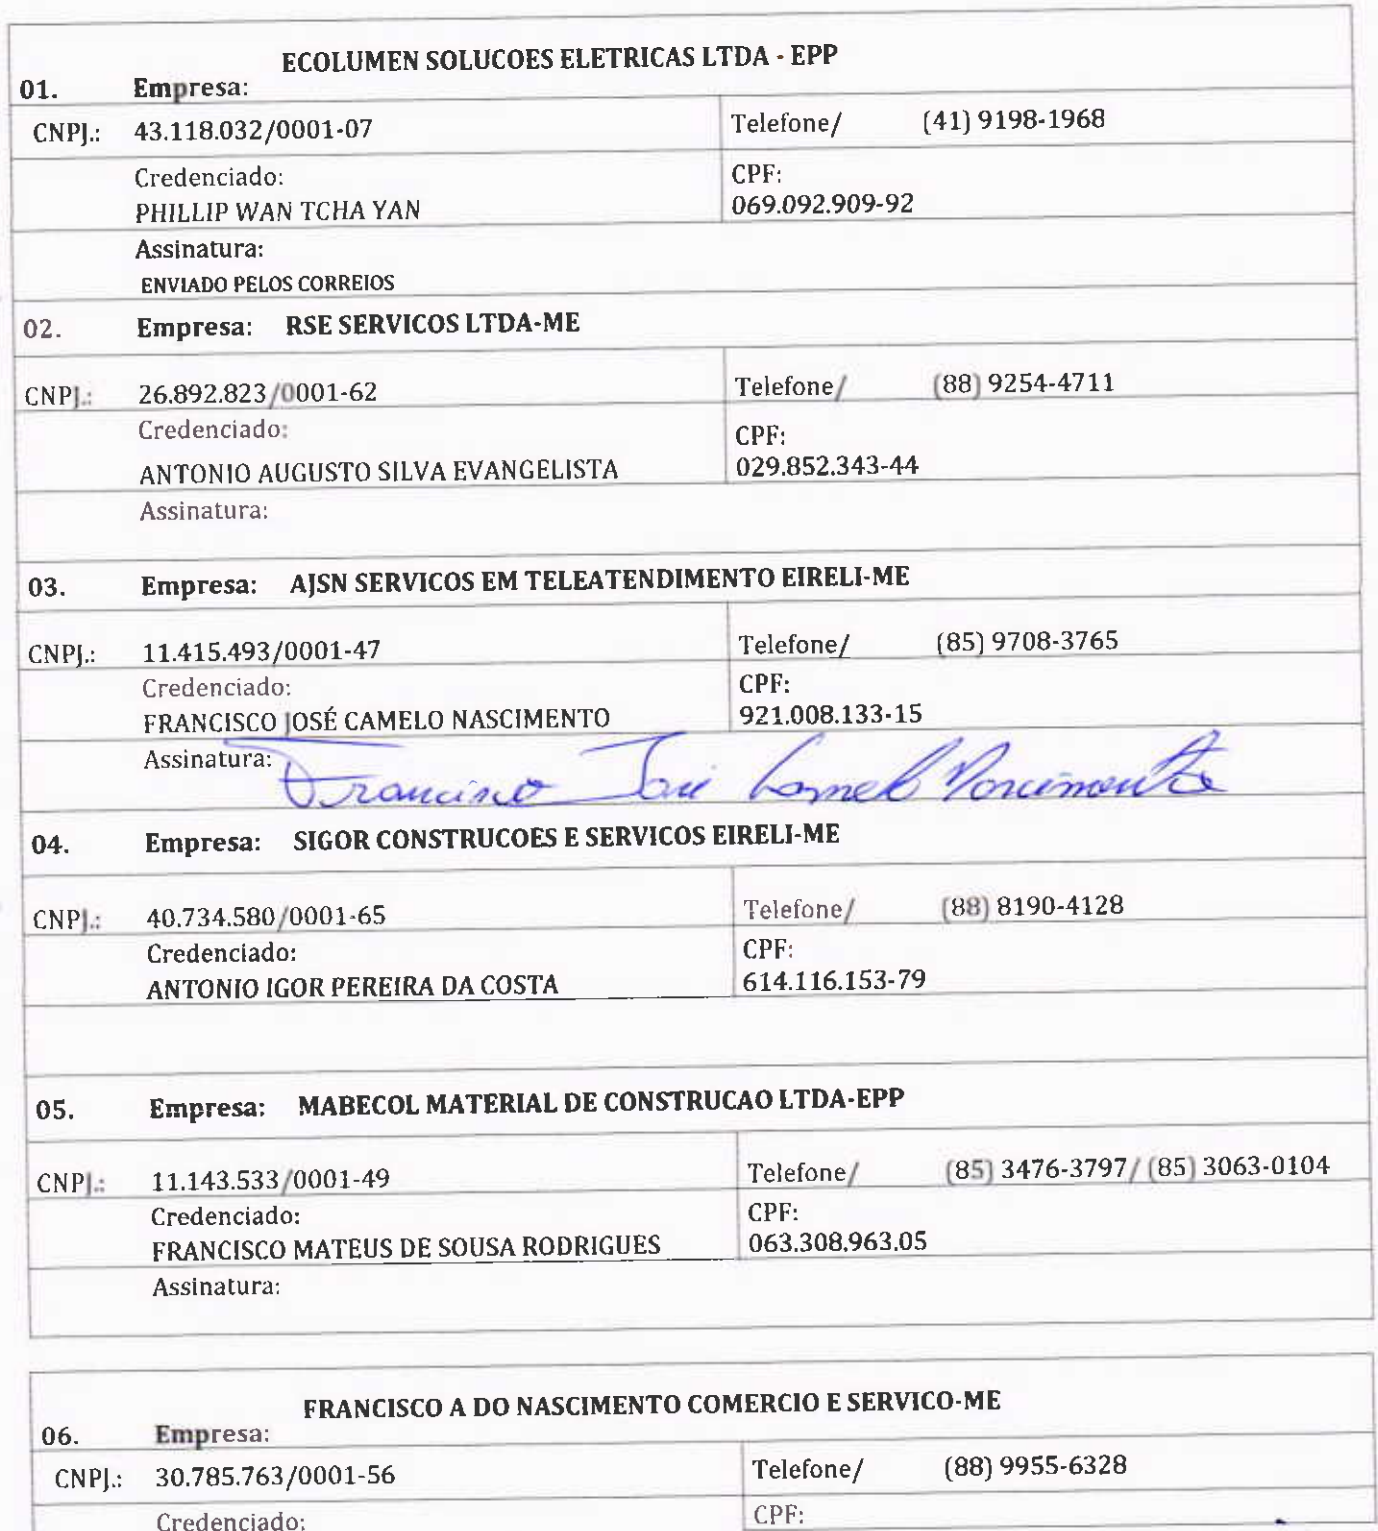 ECOLUMEN SOLUCOES ELETRICAS LTDA - EPP
01. Empresa:
CNPJ.: 43.118.032/0001-07 Telefone/ (41) 9198-1968
Credenciado: CPF:
PHILLIP WAN TCHA YAN 069.092.909-92
Assinatura:
ENVIADO PELOS CORREIOS
02. Empresa: RSE SERVICOS LTDA-ME
CNPJ.: 26.892.823/0001-62 Telefone/ (88) 9254-4711
Credenciado: CPF:
ANTONIO AUGUSTO SILVA EVANGELISTA 029.852.343-44
Assinatura:
03. Empresa: AJSN SERVICOS EM TELEATENDIMENTO EIRELI-ME
CNPJ.: 11.415.493/0001-47 Telefone/ (85) 9708-3765
Credenciado: CPF:
FRANCISCO JOSÉ CAMELO NASCIMENTO 921.008.133-15
Assinatura: Francisco José Camelo Nascimento
04. Empresa: SIGOR CONSTRUCOES E SERVICOS EIRELI-ME
CNPJ.: 40.734.580/0001-65 Telefone/ (88) 8190-4128
Credenciado: CPF:
ANTONIO IGOR PEREIRA DA COSTA 614.116.153-79
05. Empresa: MABECOL MATERIAL DE CONSTRUCAO LTDA-EPP
CNPJ.: 11.143.533/0001-49 Telefone/ (85) 3476-3797/ (85) 3063-0104
Credenciado: CPF:
FRANCISCO MATEUS DE SOUSA RODRIGUES 063.308.963.05
Assinatura:
FRANCISCO A DO NASCIMENTO COMERCIO E SERVICO-ME
06. Empresa:
CNPJ.: 30.785.763/0001-56 Telefone/ (88) 9955-6328
Credenciado: CPF: